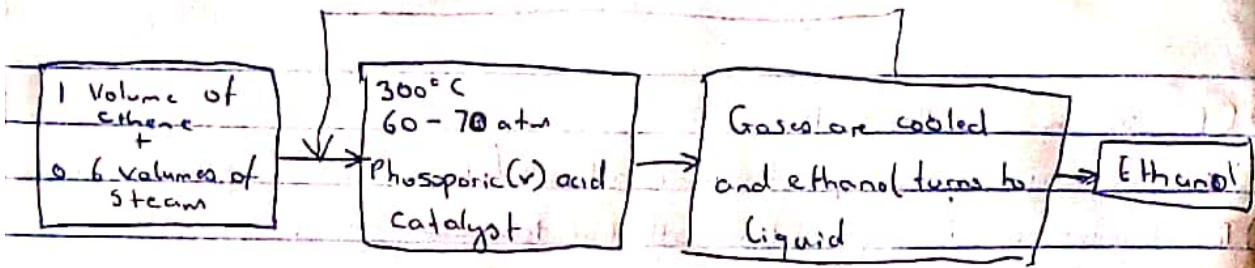 1 Volume of
ethene
+
0.6 volumes of
steam
300°C
60 - 70 atm
Phosoporic(v) acid
Catalyst
Gases are cooled
and ethanol turns to
liquid
Ethanol